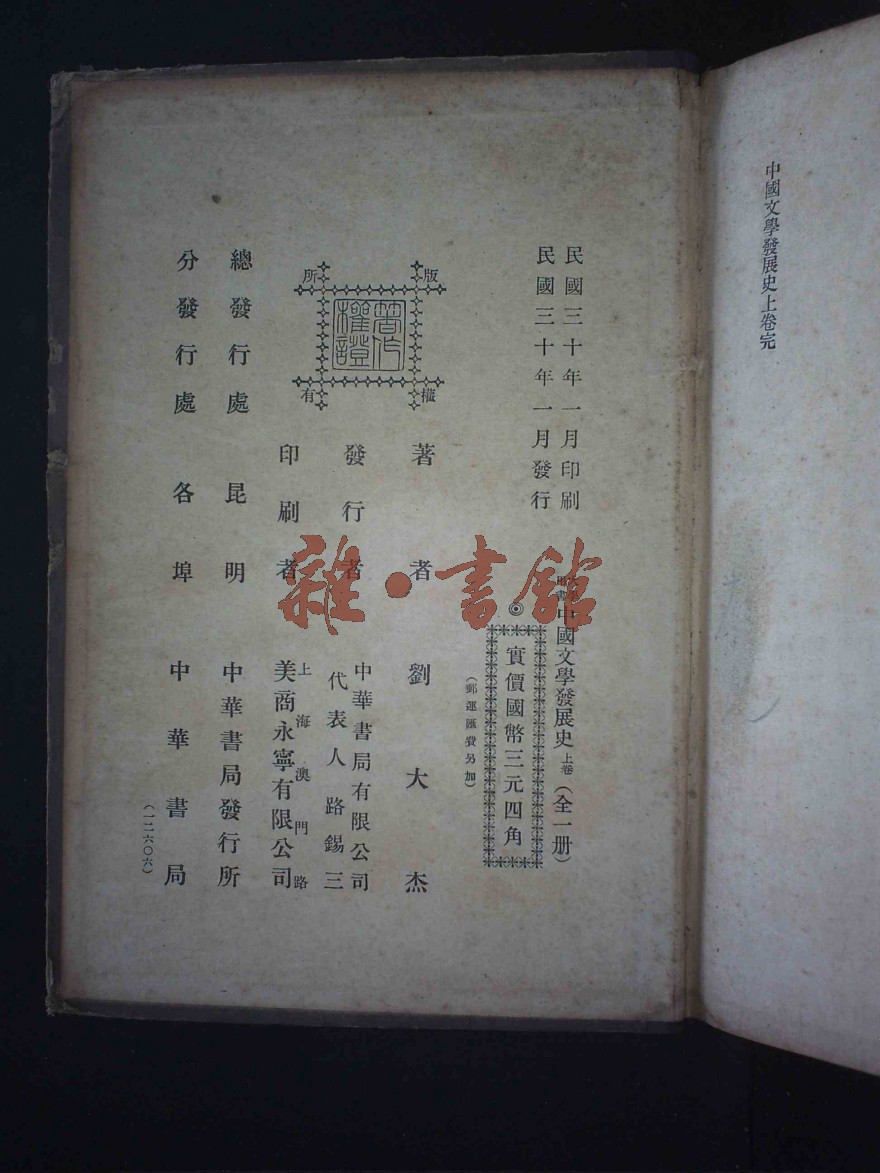 中國文學發展史上卷完
民國三十年一月印刷
民國三十年一月發行
大學用書
中國文學發展史上卷(全一册)
◎實價國幣三元四角
(郵運匯費另加)
版權所有
著作權證
著者 劉大杰
發行者 中華書局有限公司
代表人路錫三
印刷者 上海澳門路
美商永寧有限公司
總發行處 昆明 中華書局發行所
分發行處 各埠 中華書局
(一二六〇六)
雜·書館